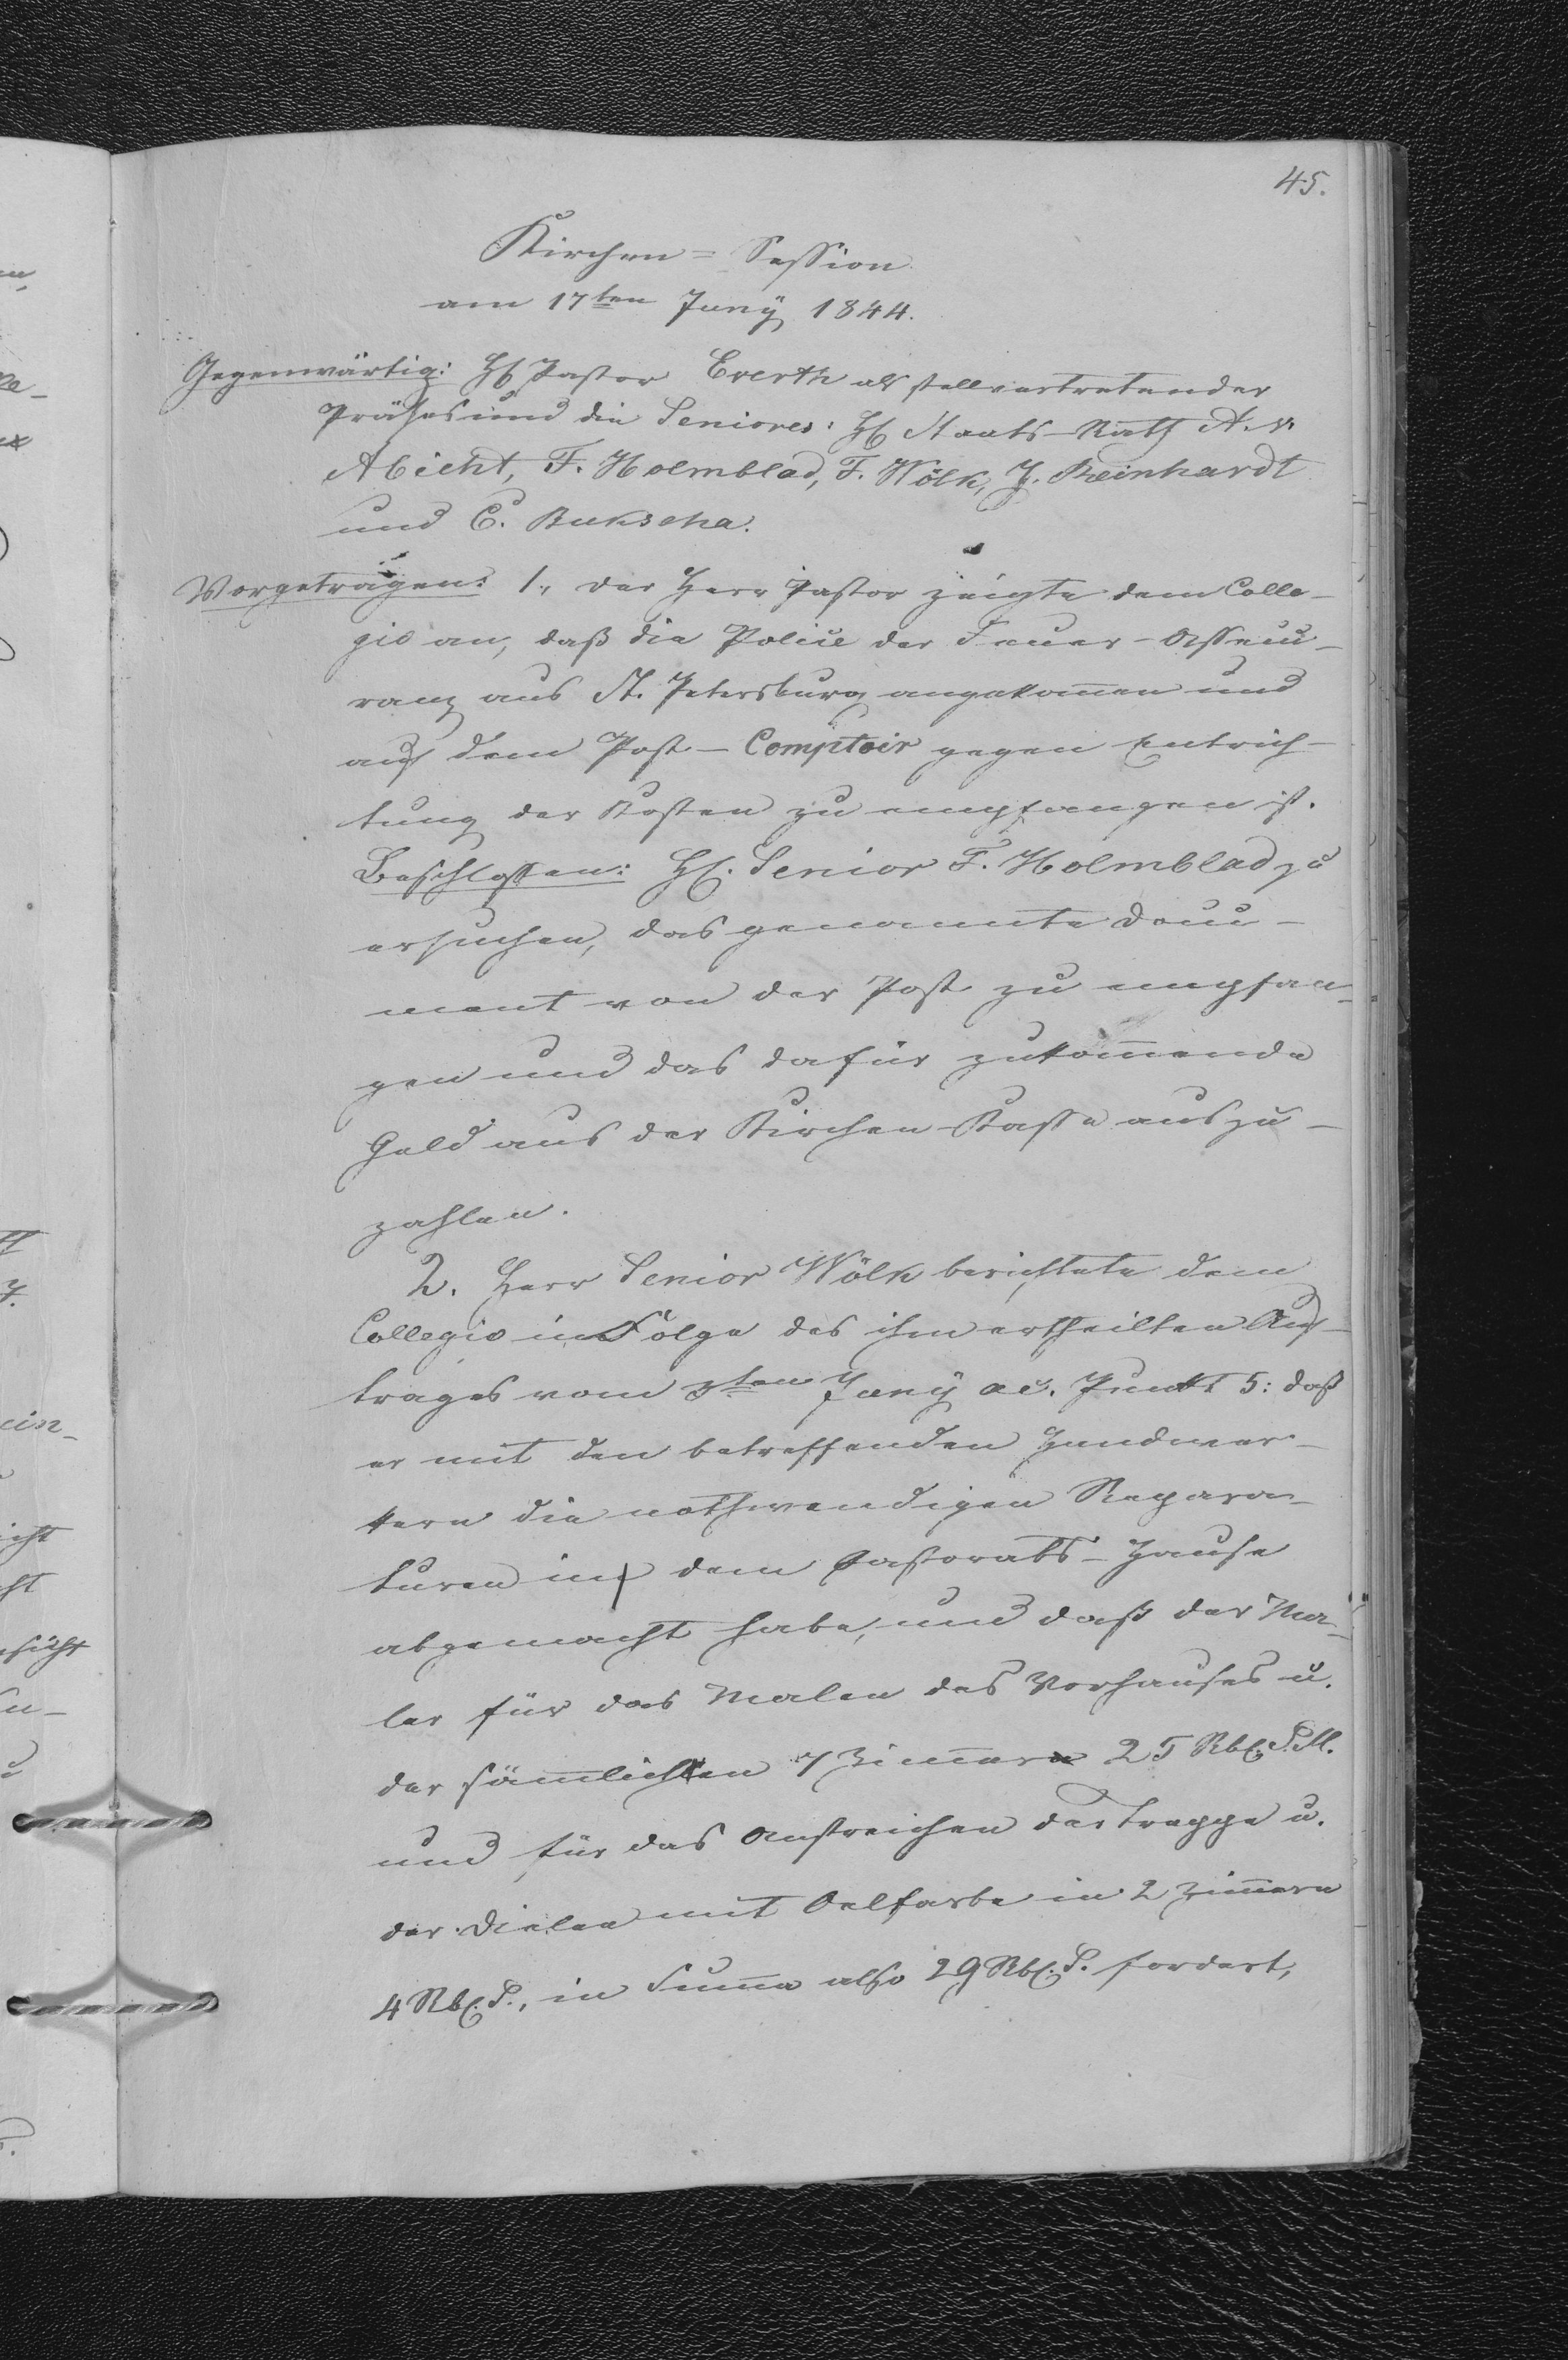 45.
Kirchen = Session
am 17ten Juny 1844.
Gegenwärtig: H Pastor Everth als stellvertretender
Präses und die Seniores: H Staats-Rath A. v.
Abicht, F. Holmblad, F. Wölk, J. Reinhardt
und C. Bukscha.
Vorgetragen: 1., der Herr Pastor zeigte dem Colle-
gio an, daß die Police der Feuer-Assecu-
ranz aus St. Petersburg angekommen und
auf dem Post-Comptoir gegen Entrich-
tung der Kosten zu empfangen ist.
Beschlossen: H. Senior F. Holmblad zu
ersuchen, das genannte Docu-
ment von der Post zu empfan-
gen und das dafür zukommende
Geld aus der Kirchen-Kasse auszu-
zahlen.
2. Herr Senior Wölk berichtete dem
Collegio in Folge des ihm ertheilten Auf-
trages vom 3ten Juny ac. Punkt 5: daß
er mit den betreffenden Handwer-
kern die nothwendigen Repara-
turen in dem Pastorats-Hause
abgemacht habe, und daß der Ma-
ler für das Malen des Vorhauses u.
der sämmlichten 7 Zimmer 25 Rbl. S.M.
und für das Anstreichen der Treppe u.
der Dielen mit Oelfarbe in 2 Zimmern
4 Rbl. S., in Summa also 29 Rbl. S. fordert,